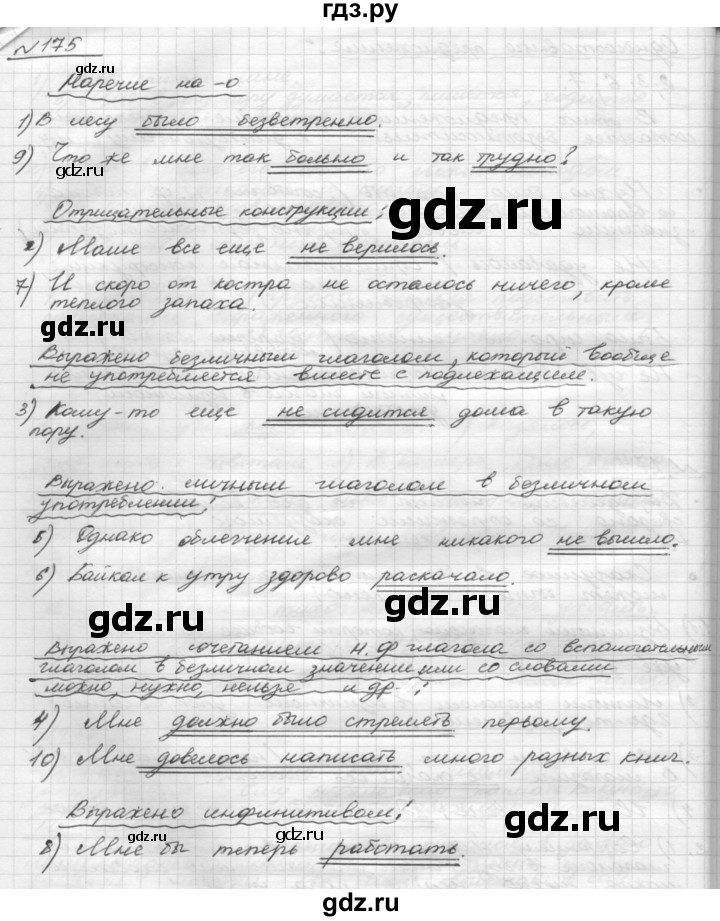 гдз.ру
№175
Наречие на -о
1) В лесу было безветренно.
9) Что же мне так больно и так трудно?
gdz.ru
gdz.ru
Отрицательные конструкции!
2) Маше все еще не верилось.
7) И скоро от костра не осталось ничего, кроме
теплого запаха.
gdz.ru
gdz.ru
Выражено безличным глаголом, который вообще
не употребляется вместе с подлежащим.
3) Кому-то еще не сидится дома в такую
пору.
gdz.ru
Выражено личным глаголом в безличном
употреблении!
5) Однако облегчения мне никакого не вышло.
6) Байкал к утру здорово раскачало.
gdz.ru
gdz.ru
Выражено, сочетанием н.ф глагола со вспомогательным
глаголом в безличном значение или со словами
можно, нужно, нельзя и др.!
4) Мне должно было стрелять первому.
10) Мне довелось написать много разных книг.
gdz.ru
gdz.ru
Выражено инфинитивом!
gdz.ru
8) Мне бы теперь работать.
гдз.ру